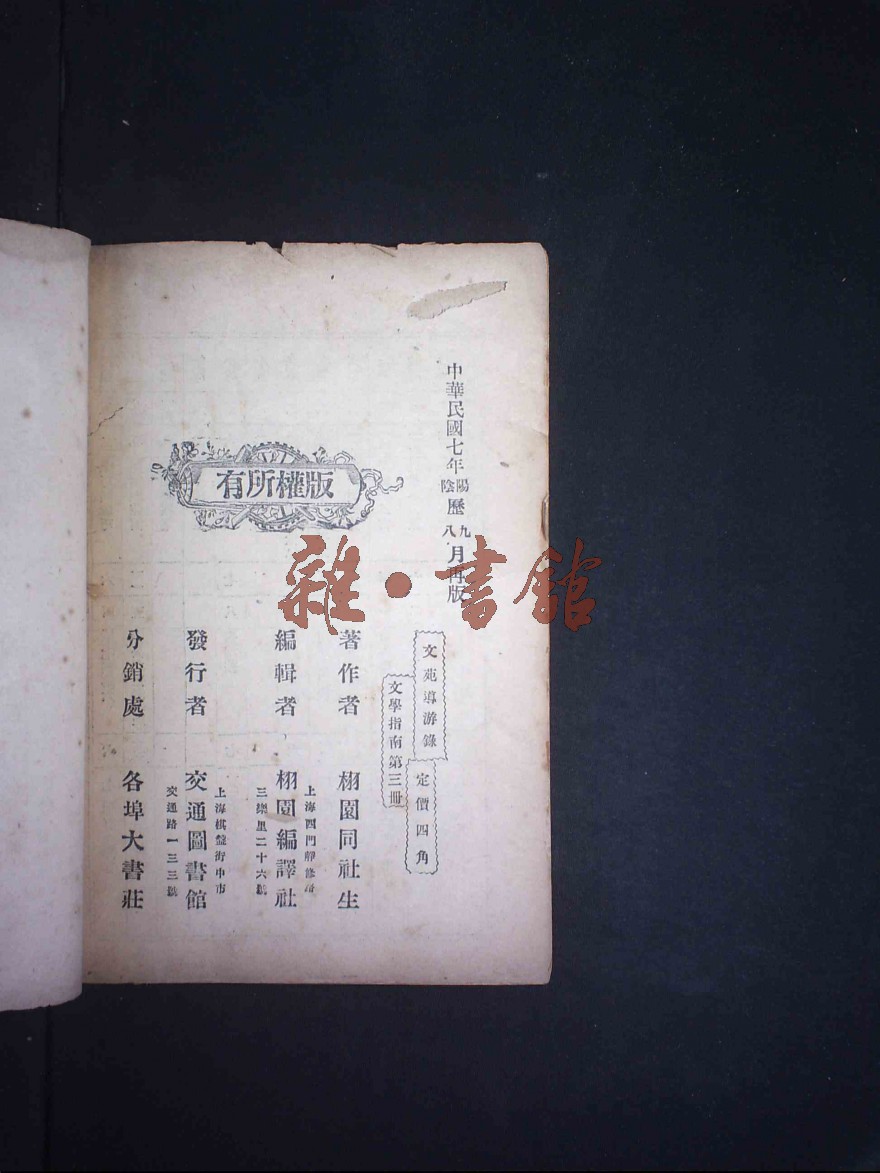 中華民國七年陽陰歷九八月再版
文苑導游錄
定價四角
文學指南第三冊
版權所有
著作者 栩園同社生
編輯者 栩園編譯社
上海西門靜修路
三樂里二十六號
發行者 交通圖書館
上海棋盤街中市
交通路一三三號
分銷處 各埠大書莊
雜·書館